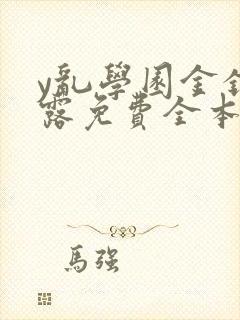 y亂學園金銀
露免費全本
馬強